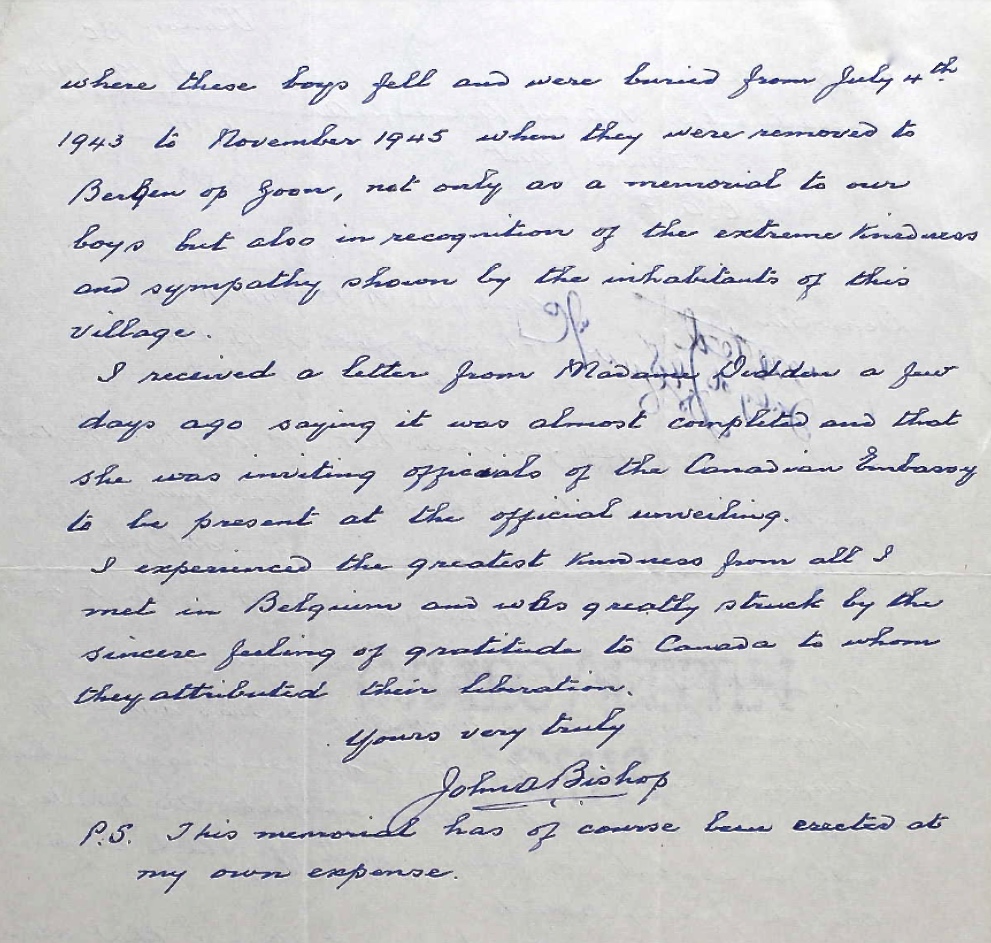 where these boys fell and were buried from July 4th
1943 to November 1945 when they were removed to
Bergen op Zoon, not only as a memorial to our
boys but also in recognition of the extreme kindness
and sympathy shown by the inhabitants of this
village.
I received a letter from Madame Diddon a few
days ago saying it was almost completed and that
she was inviting officials of the Canadian Embassy
to be present at the official unveiling.
I experienced the greatest kindness from all I
met in Belgium and was greatly struck by the
sincere feeling of gratitude to Canada to whom
they attributed their liberation.
Yours very truly
John A Bishop
P.S. This memorial has of course been erected at
my own expense.